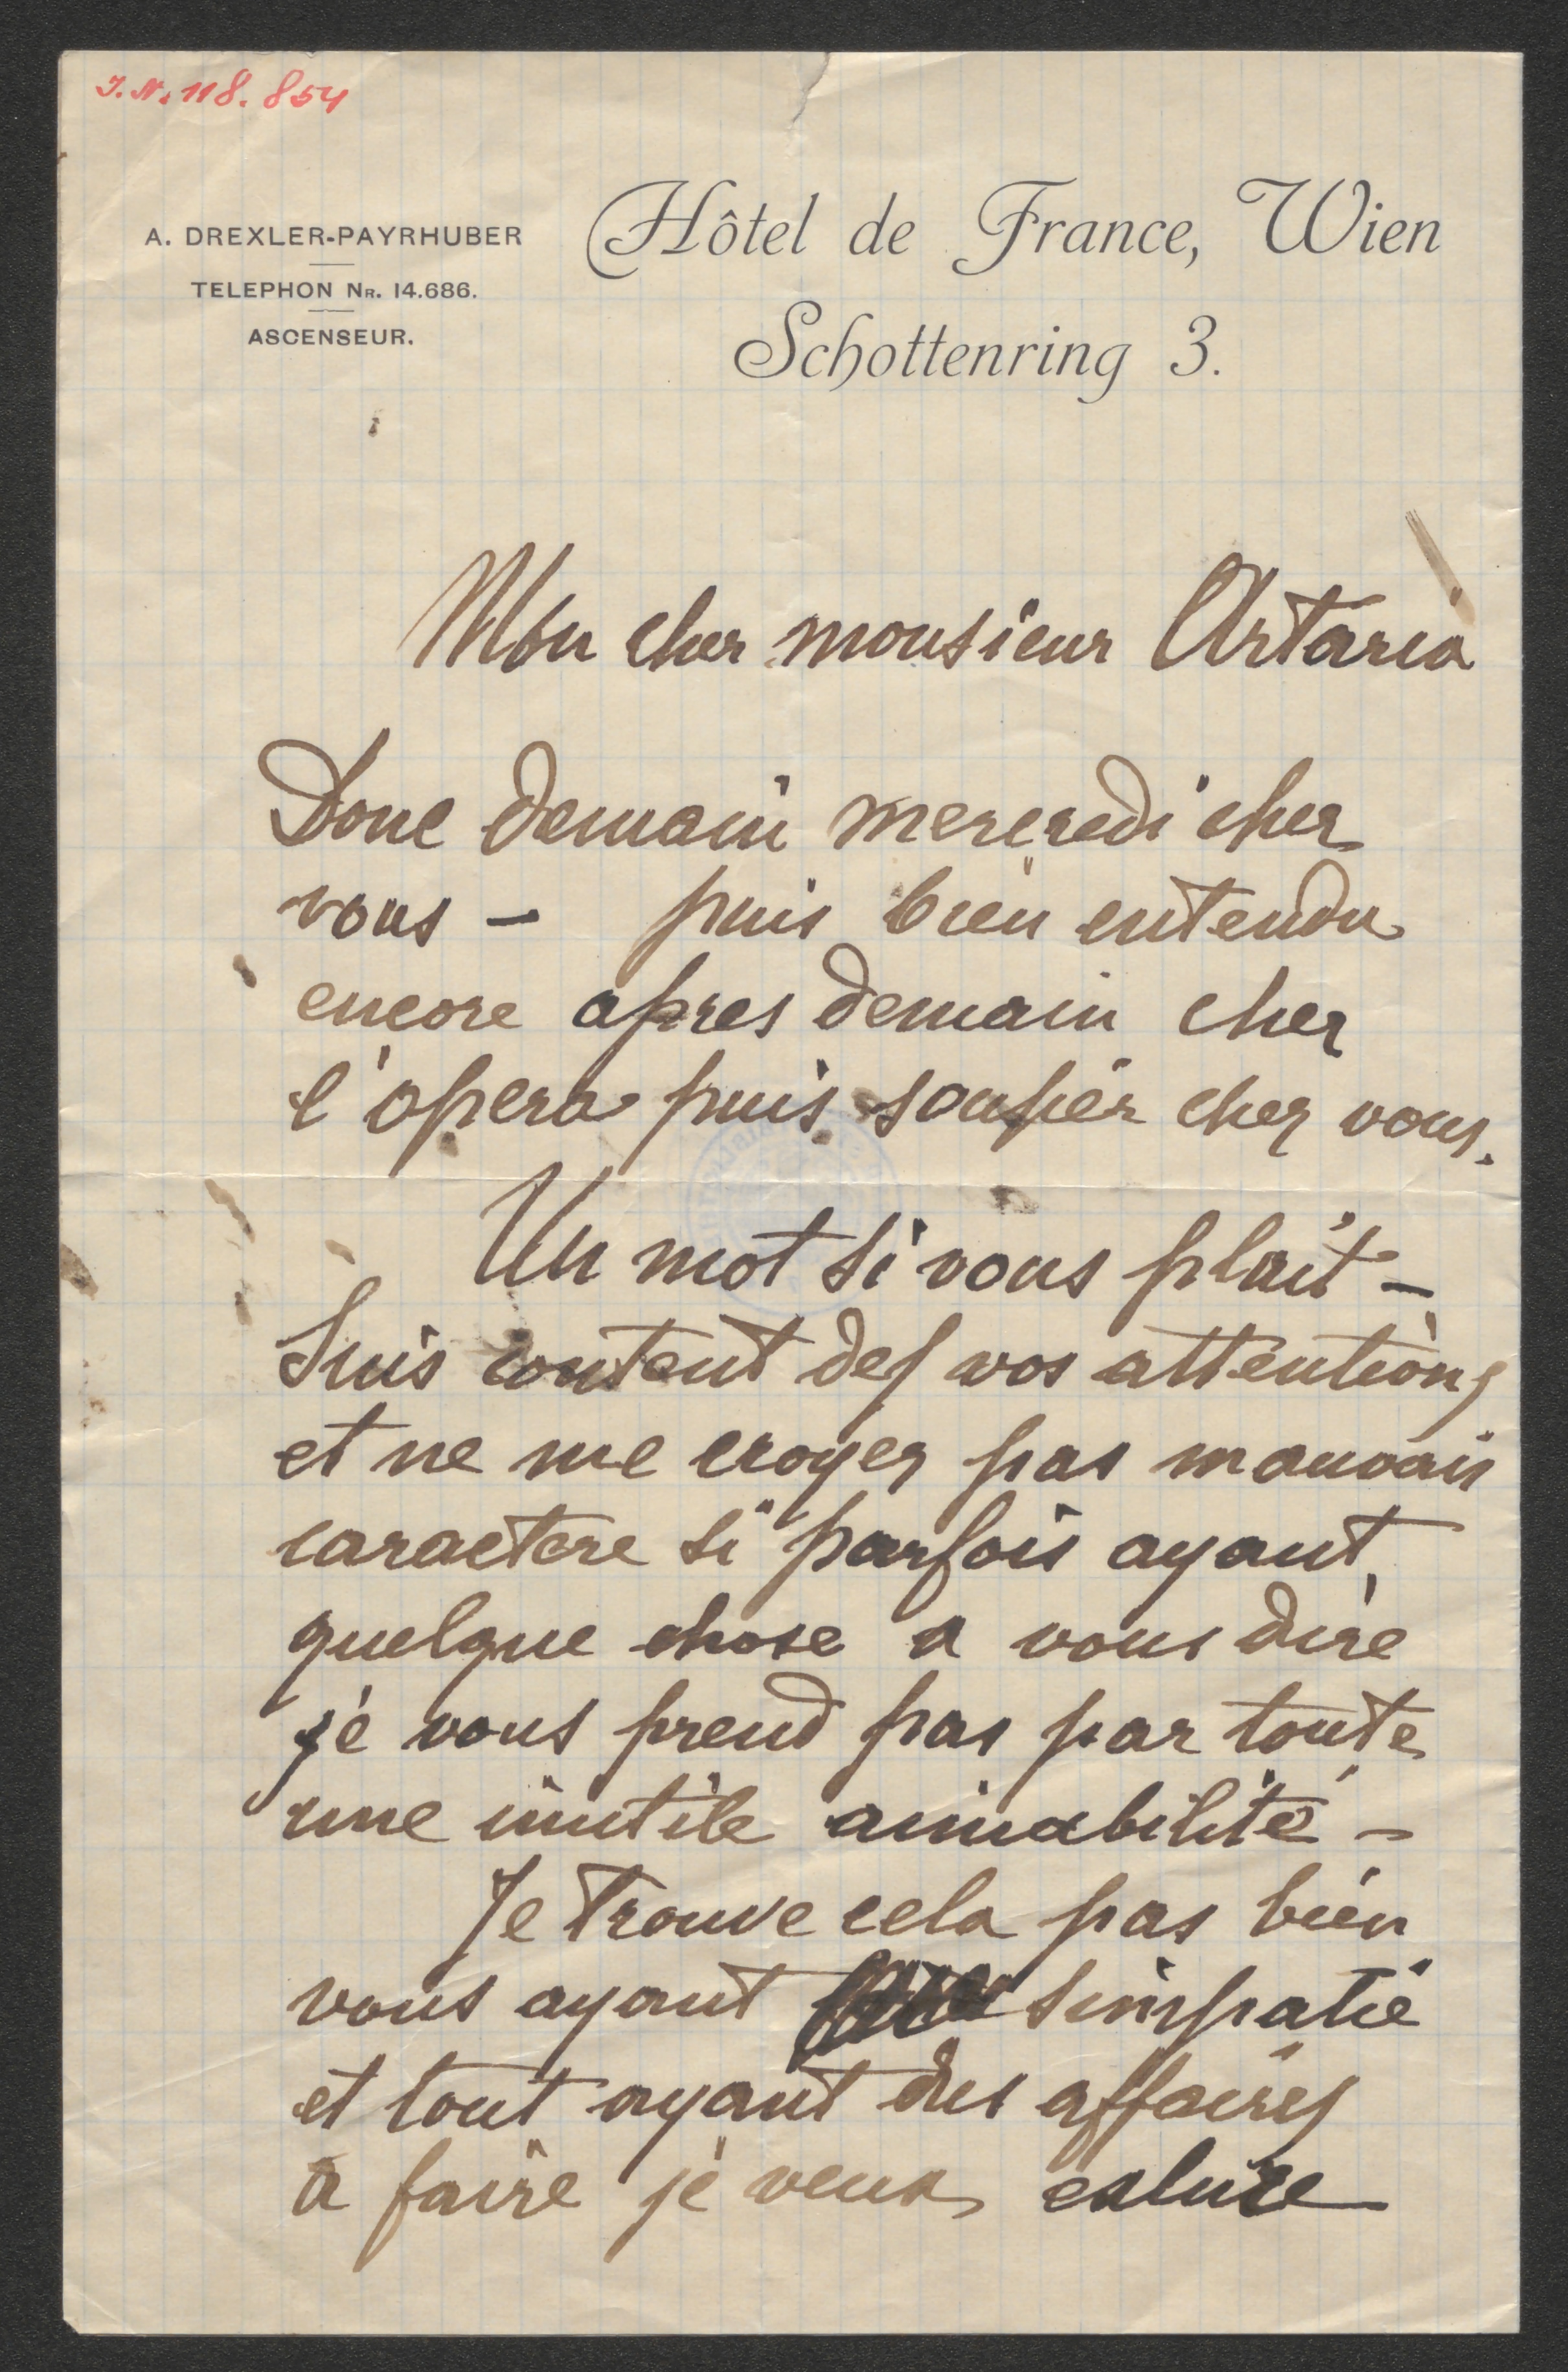 J. N. 118.854
A. DREXLER-PAYRHUBER
TELEPHON NR. 14.686.
ASCENSEUR.
Hôtel de France, Wien
Schottenring 3.
Mon cher monsieur Artaria
Donc demain mercredi chez
vous – puis bien entendu
encore apres demain chez
l'opera puis souper chez vous.
Un mot si vous plait –
Suis content des vos attentions
et ne me croyez pas mauvais
caractere si parfois ayant
quelque chose a vous dire
je vous prend pas par toute
une inutile aimabilité –
Je trouve cela pas bien
vous ayant simpatie
et tout ayant des affaires
a faire je veux exlure